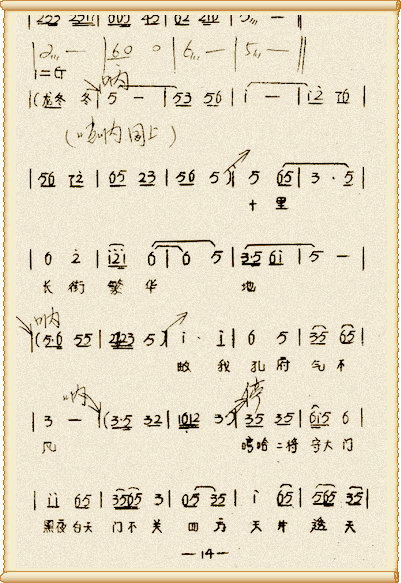 |2 — | 60 0 | 6 — | 5 — ||
1=G 呐
|(龙冬 冬 | 5 — | 53 56 | i — | i2 76 |
(唢呐同上)
|56 72 | 65 23 | 56 5)| 5 65 | 3 · 5 |
十 里
| 6 2 | i2i 6 | 6 5 | 35 6i | 5 — |
长 街 繁 华 地
呐
|(5·6 55 | 2123 5)| i · i | 6 5 | 35 65 |
我 孔 府 气 不
呐 停
| 3 — |(3·5 32 | 1012 3)| 35 35 | 6i5 6 |
凡 哼哈 二将 守大 门
| ii 65 | 3565 3 | 65 35 | i 65 | 565 35 |
黑夜 白天 门不 关 四 方 天 透 天
— 14 —